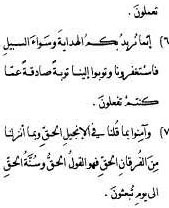 تعملون .
(٦) إنما نريد بكم الهداية وسواء السبيل
فاستغفرونا وتوبوا إلينا توبة صادقة عما
كنتم تفعلون .
(٧) وآمنوا بما قلنا في الإنجيل الحق وبما أنزلنا
من الفرقان الحق فهو القول الحق وسنة الحق
إلى يوم تبعثون .